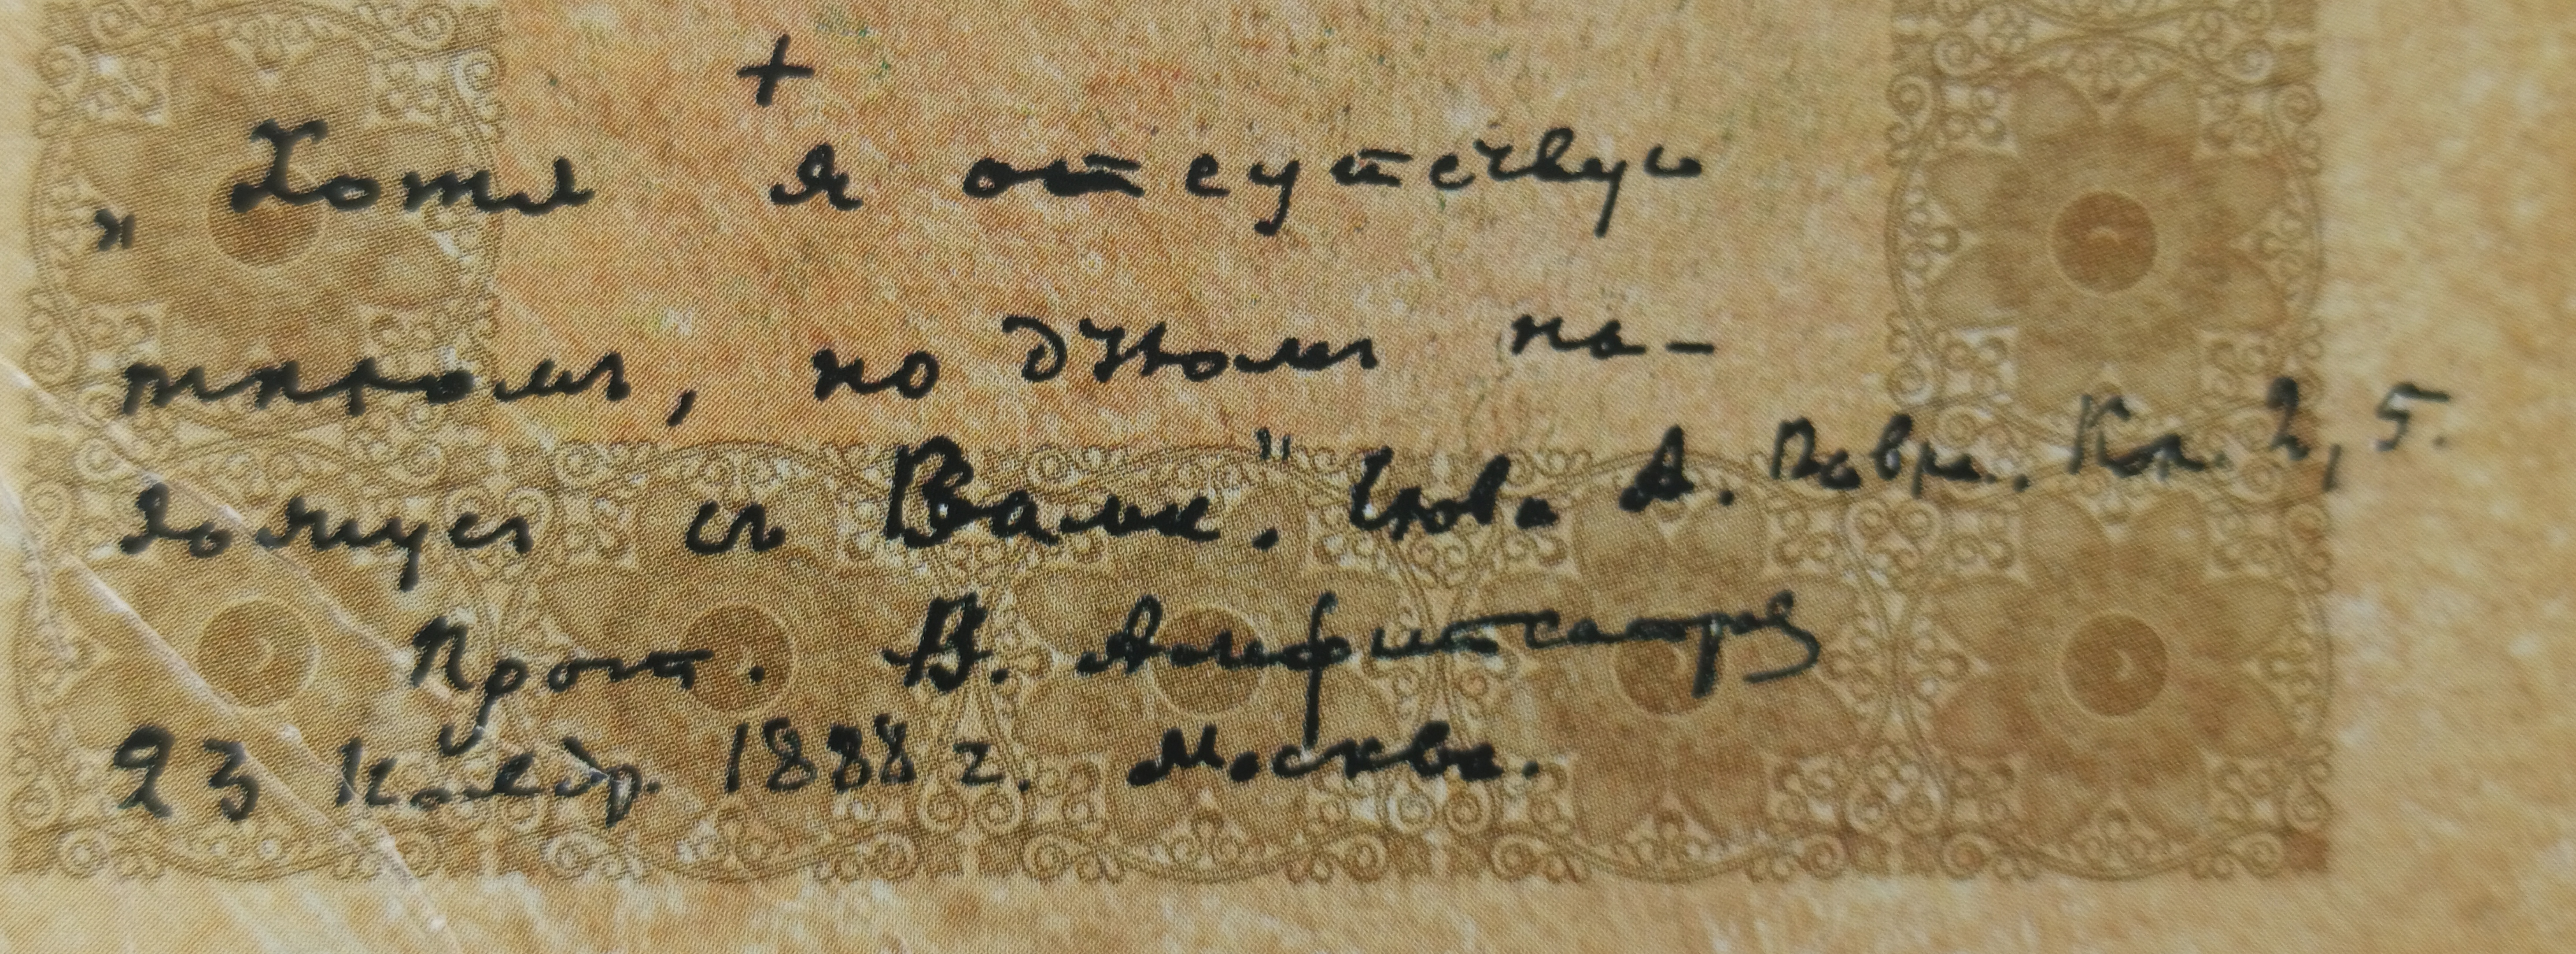 +
„Хотя я отсутствую
тѣломъ, но духомъ на-
хожусь съ Вами." Слова А. Павла. Кол. 2, 5.
Прот. В. Амфитеатров
23 Ноября. 1888 г. Москва.